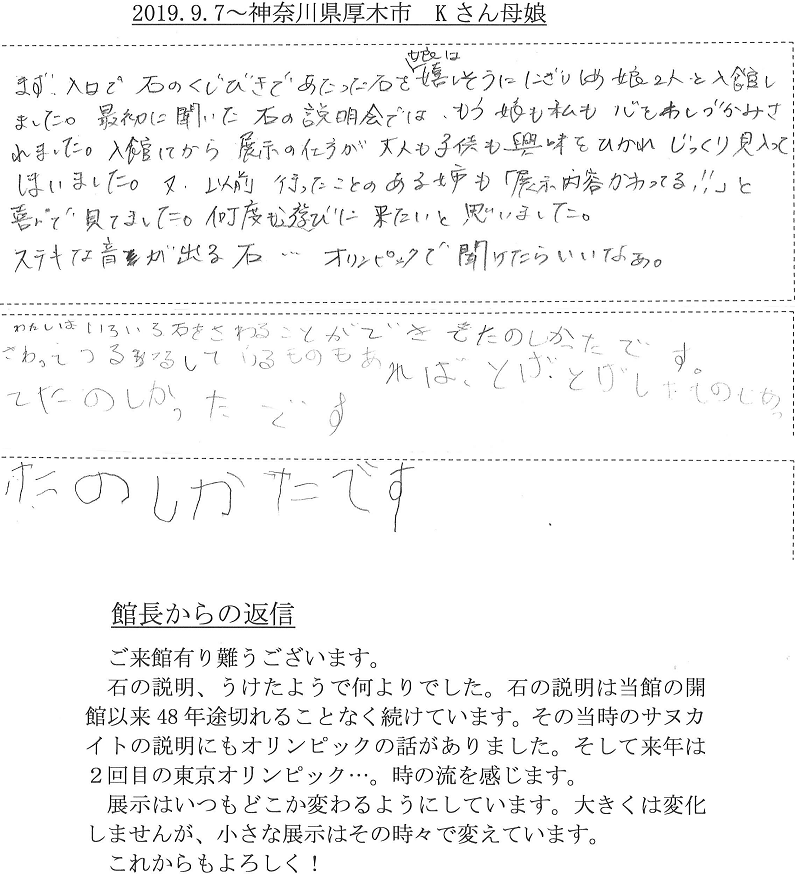 2019.9.7～神奈川県厚木市　Kさん母娘
娘は
まず、入口で 石のくじびきであたった石を嬉しそうににぎりしめ娘2人と入館し
ました。最初に聞いた 石の説明会では、もう娘も私も 心をわしづかみさ
れました。入館してから 展示の仕方が 大人も子供も興味をひかれ じっくり見入って
しまいました。又、以前 行ったことのある姉も「展示内容かわってる!!」と
喜んで見てました。何度も遊びに来たいと思いました。
ステキな音が出る石… オリンピックで聞けたらいいなぁ。
わたしは いろいろ石をさわることができ てたのしかったです。
さわって つるつるして いるものもあれば、とげとげしたものもあっ
てたのしかったです
たのしかたです
館長からの返信
ご来館有り難うございます。
石の説明、うけたようで何よりでした。石の説明は当館の開
館以来48年途切れることなく続けています。その当時のサヌカ
イトの説明にもオリンピックの話がありました。そして来年は
２回目の東京オリンピック…。時の流を感じます。
展示はいつもどこか変わるようにしています。大きくは変化
しませんが、小さな展示はその時々で変えています。
これからもよろしく！